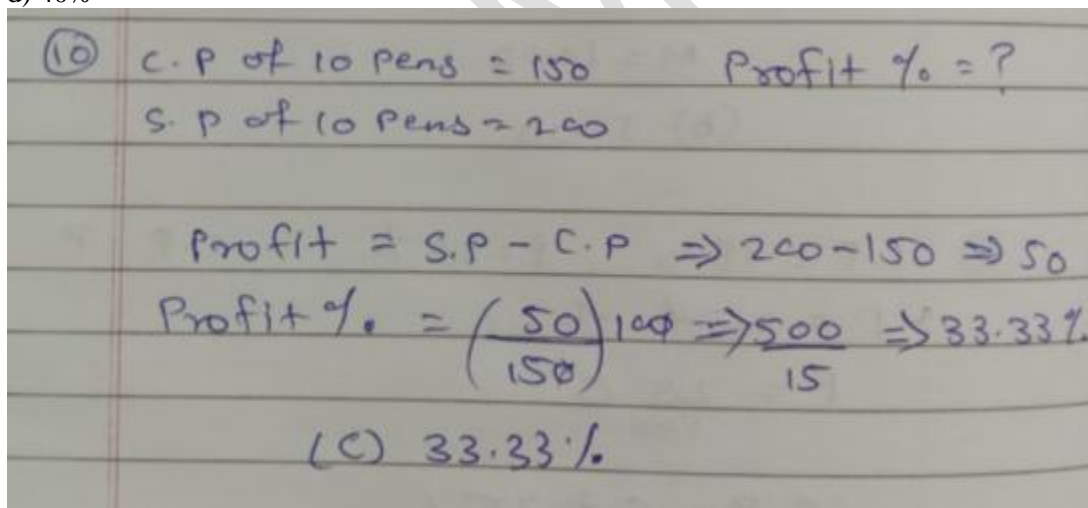 (10) C.P of 10 Pens = 150 Profit % = ?
S.P of 10 Pens = 200
Profit = S.P - C.P ⇒ 200-150 ⇒ 50
Profit % = (50/150) 100 ⇒ 500/15 ⇒ 33.33%
(C) 33.33%